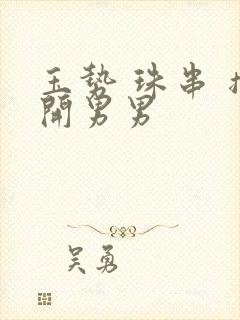 玉势 珠串
開男男
吴勇